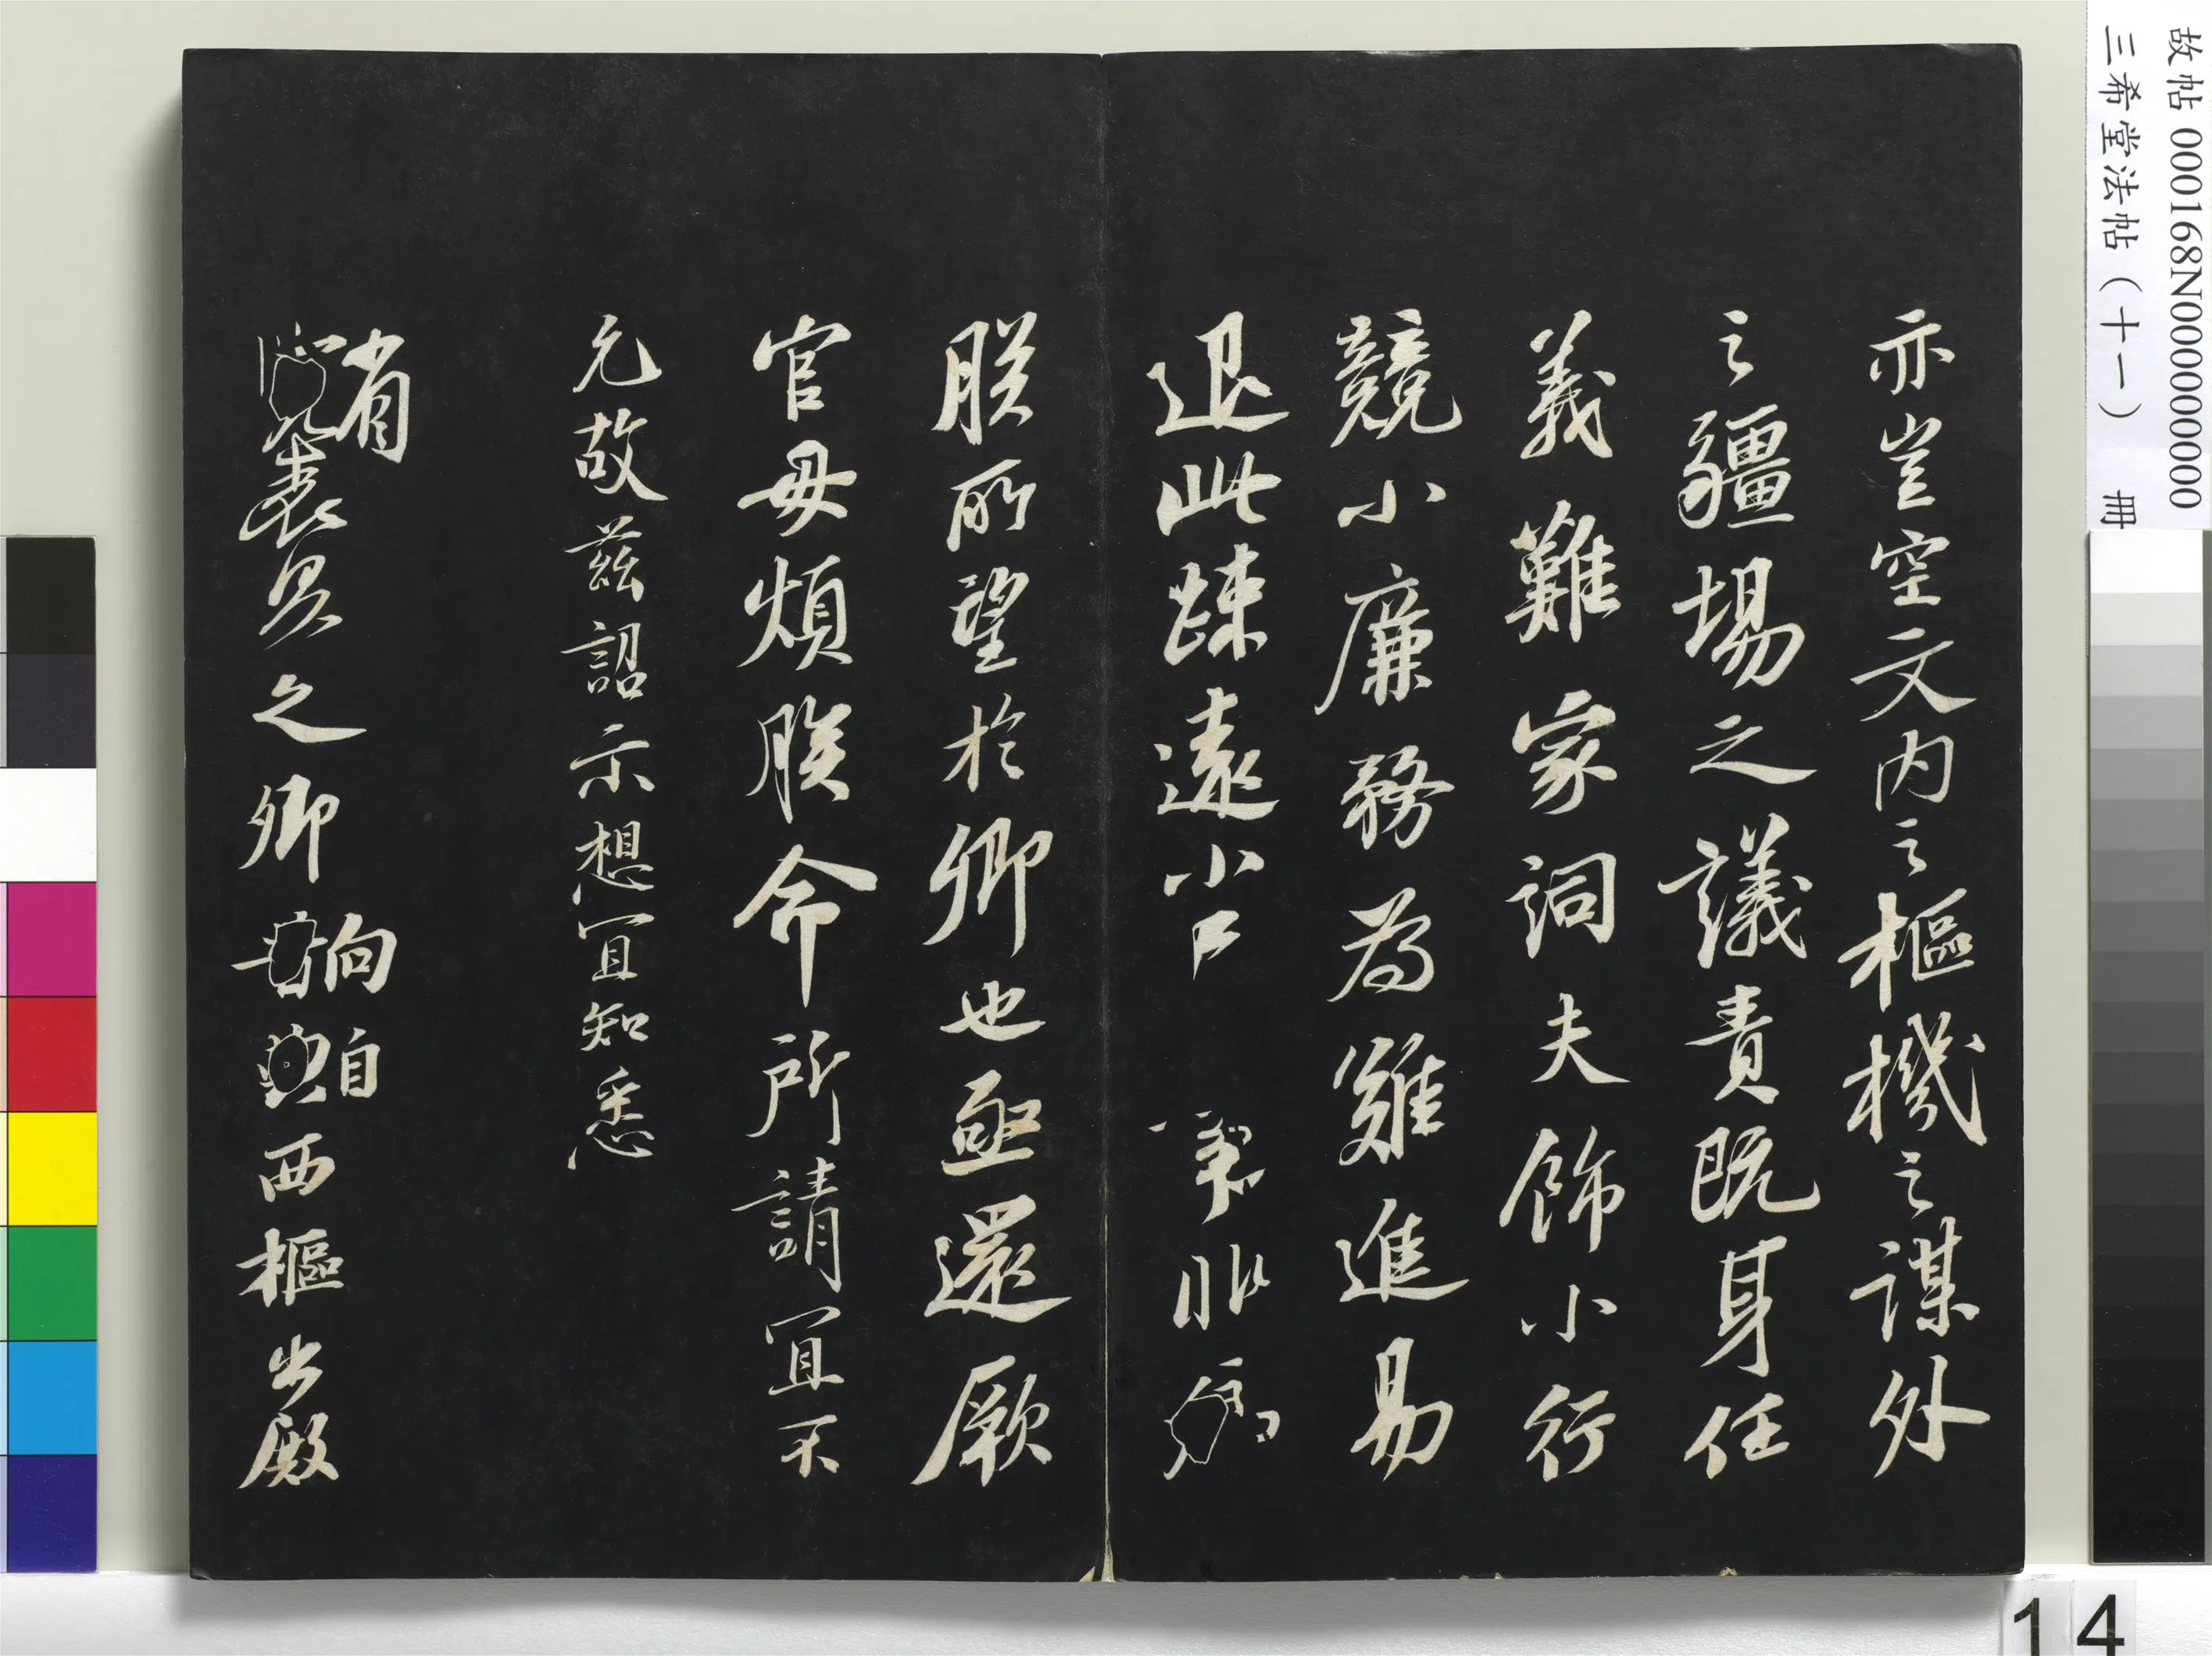 亦豈空文內之樞機之謀外
之疆埸之議責既身任
義難家詞夫飾小行
競小廉務為難進易
退此疎遠小
朕所望於卿也亟還厥
官毋煩朕命所請宜不
允故茲詔示想宜知悉
省表具之卿向自西樞出殿
故帖 000168N000000000
三希堂法帖（十一） 冊
14